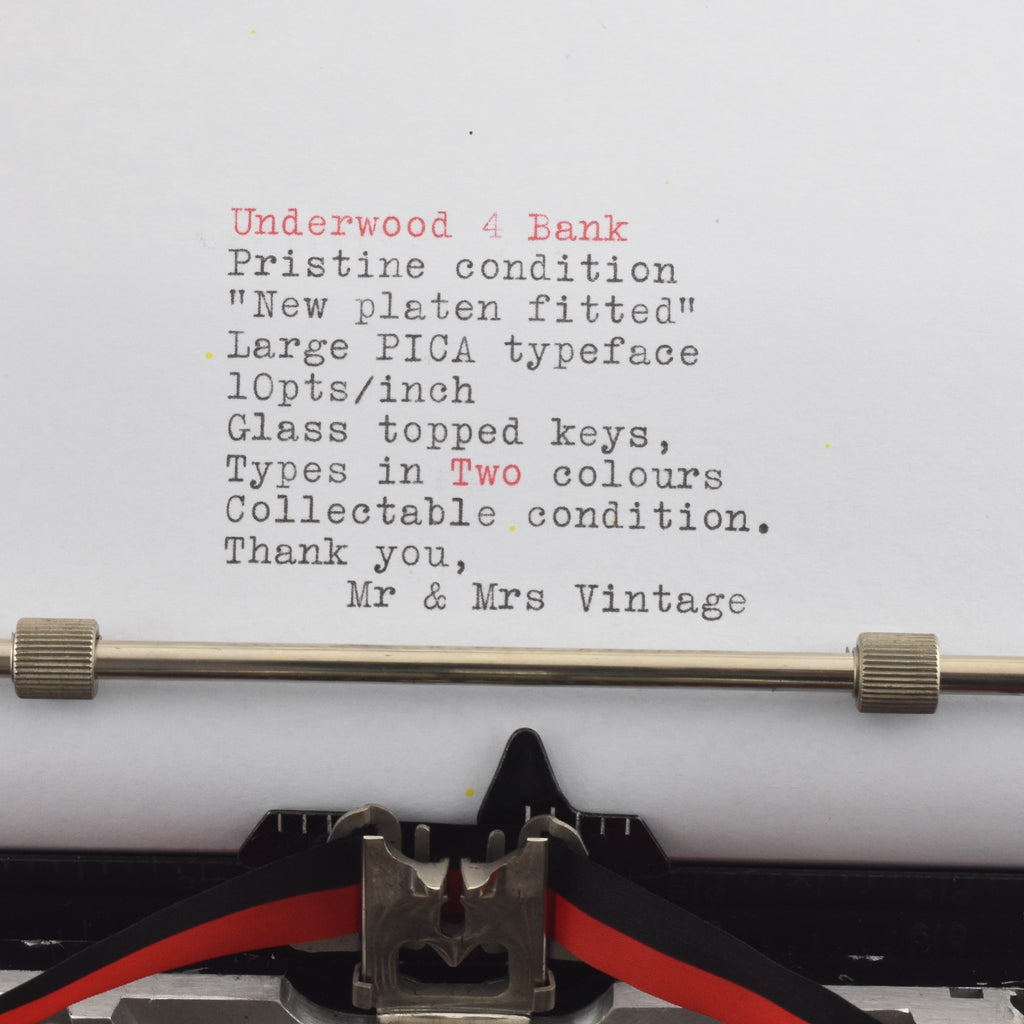 Underwood 4 Bank
Pristine condition
"New platen fitted"
Large PICA typeface
10pts/inch
Glass topped keys,
Types in Two colours
Collectable condition.
Thank you,
Mr & Mrs Vintage